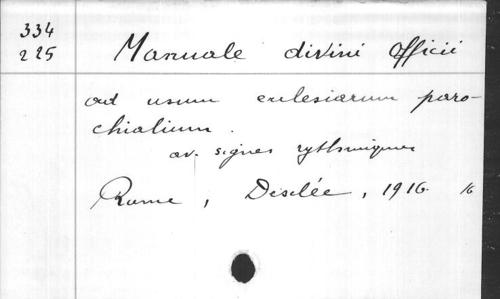 334
225
Manuale divini Officii
ad usum ecclesiarum paro-
chialium.
av. signes rythmiques
Rome, Desclée, 1916. 16